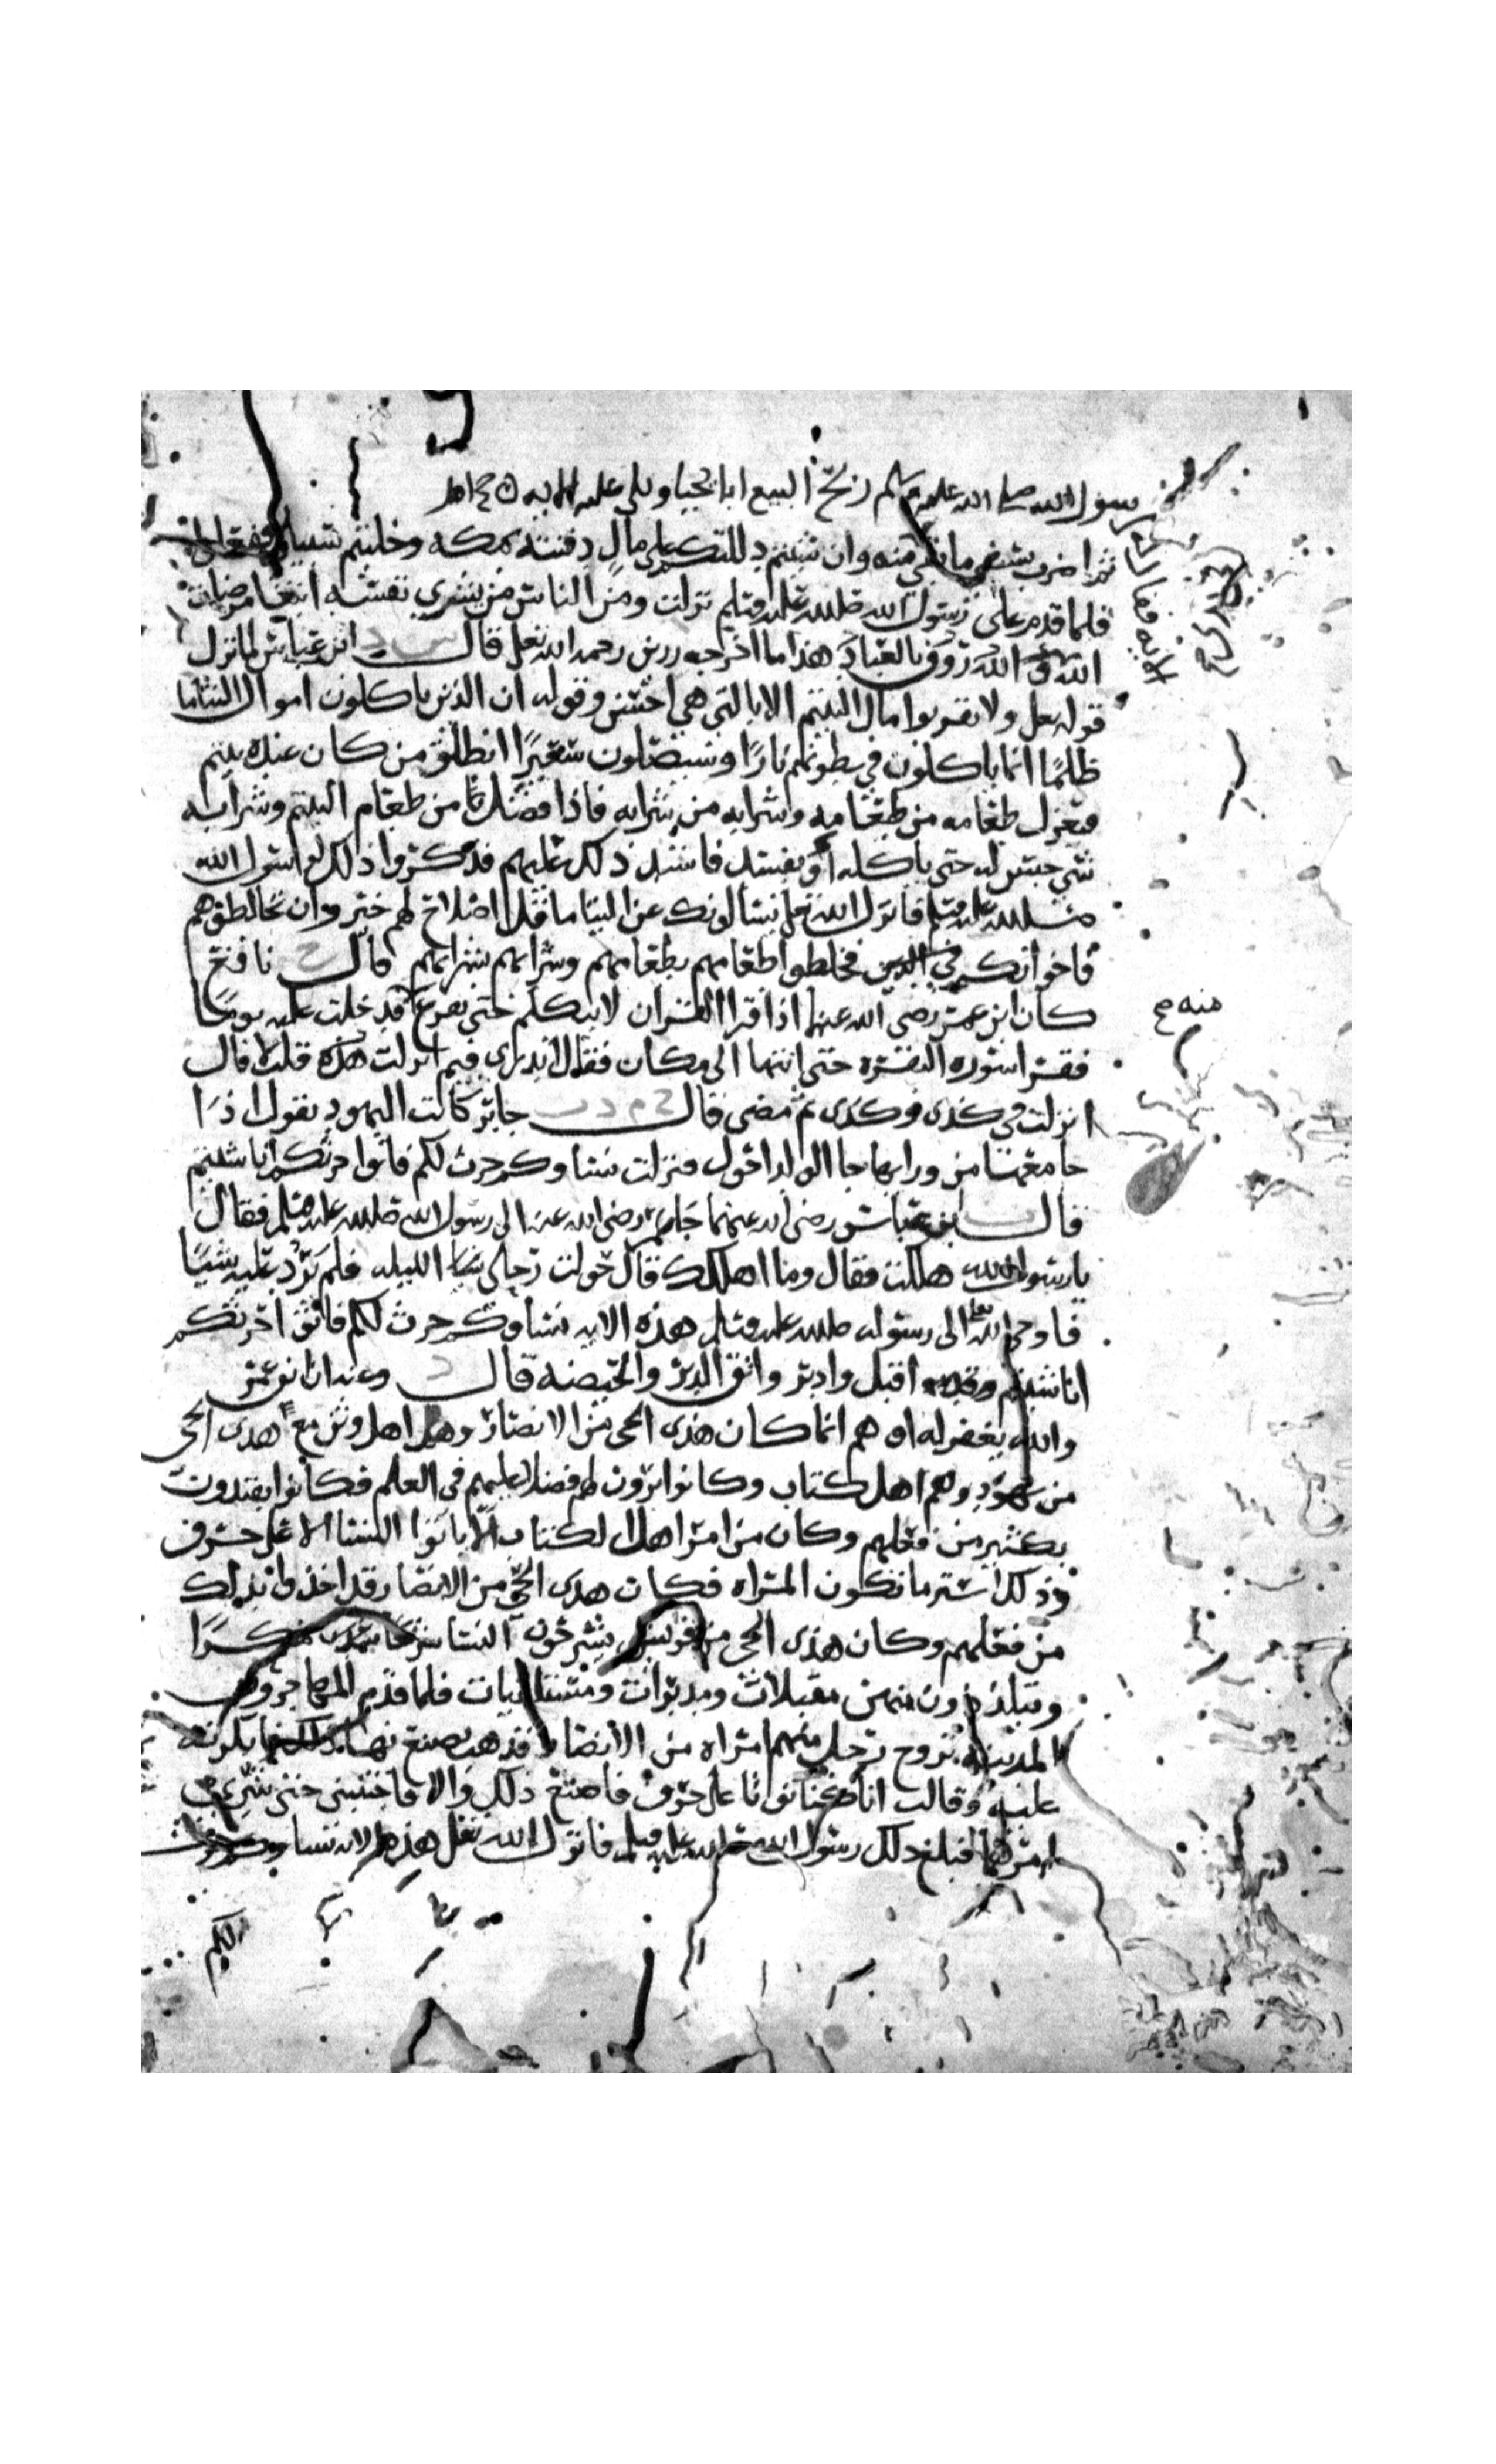 رسول الله صلى الله عليه وسلم ربح البيع ابا يحيا وتلى عليه الايه
ثم اضرب بسيفي ما بقي منه وان شيتم دللتكم على مال دفنته بمكه وخليتم سبيلي ففعلوا
فلما قدم على رسول الله صلى الله عليه وسلم نزلت ومن الناس من يشري نفسه ابتغا مرضات
الله والله رؤوف بالعباد هذا ما اخرجه رزين رحمه الله تعلى قال س د ابن عباس لما نزل
قوله تعلى ولا تقربوا مال اليتيم الا بالتي هي احسن وقوله ان الذين ياكلون اموال اليتاما
ظلمًا انما ياكلون في بطونهم نارًا وسيصلون سعيرًا انطلق من كان عنده يتيم
فيعزل طعامه من طعامه وشرابه من شرابه فاذا فضل من طعام اليتيم وشرابه
شي حبس له حتى ياكله او يفسد فاشتد ذلك عليهم فذكروا ذلك لرسول الله
صلى الله عليه وسلم فانزل الله تعلى يسالونك عن اليتاما قل اصلاح لهم خير وان تخالطوهم
فاخوانكم في الدين فخلطوا طعامهم بطعامهم وشرابهم بشرابهم قال خ نافع
كان ابن عمر رضي الله عنهما اذا قرا القران لا يتكلم حتى يفرغ فدخلت عليه يومًا
منه صح
فقرا سورة البقره حتى انتها الى مكان فقال اتدرى فيم انزلت هذه قلت لا قال
انزلت في كذى وكذى ثم مضى قال خ م د ت جابر كانت اليهود تقول اذا
جامعها من ورايها جا الولد احول فنزلت نساوكم حرث لكم فاتوا حرثكم انا شيتم
قال ت ابن عباس رضي الله عنهما جا عمر رضي الله عنه الى رسول الله صلى الله عليه وسلم فقال
يا رسول الله هلكت فقال وما اهلكك قال حولت رحلي الليله فلم يرد عليه شيًا
فاوحى الله الى رسوله صلى الله عليه وسلم هذه الايه نساوكم حرث لكم فاتوا حرثكم
انا شيتم اقبل وادبر واتق الدبر والحيضه قال د وعنه ان ابن عمر
والله يغفر له اوهم انما كان هذى الحى من الانصار وهم اهل وثن مع هذى الحى
من يهود وهم اهل كتاب وكانوا يرون لهم فضلا عليهم في العلم فكانوا يقتدون
بكثير من فعلهم وكان من امر اهل الكتاب الا ياتوا النسا الا على حرف
وذلك استر ما تكون المراه فكان هذى الحي من الانصار قد اخذوا بذلك
من فعلهم وكان هذى الحى من قريش يشرحون النسا شرحًا منكرًا
ويتلذذون منهن مقبلات ومدبرات ومستلقيات فلما قدم المهاجرون
المدينه تزوج رجل منهم امراه من الانصار فذهب يصنع بها ذلك فانكرته
عليه وقالت انا كنا نوتا على حرف فاصنع ذلك والا فاجتنبني حتى شري
امرهما فبلغ ذلك رسول الله صلى الله عليه وسلم فانزل الله تعلى هذه الايه نساوكم حرث
لكم